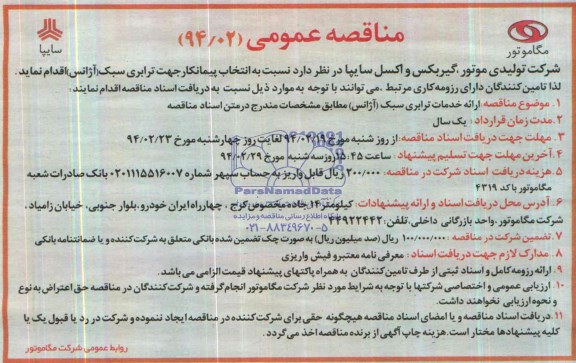 مناقصه عمومی (۹۴/۰۲)
مگاموتور
سایپا
شرکت تولیدی موتور ،گیربکس و اکسل سایپا در نظر دارد نسبت به انتخاب پیمانکار جهت ترابری سبک(آژانس)اقدام نماید.
لذا تامین‌کنندگان دارای رزومه کاری مرتبط ، می توانند با توجه به موارد ذیل نسبت به دریافت اسناد مناقصه اقدام نمایند:
۱. موضوع مناقصه :ارائه خدمات ترابری سبک (آژانس) مطابق مشخصات مندرج درمتن اسناد مناقصه
۲.مدت زمان قرارداد : یک سال
۳. مهلت جهت دریافت اسناد مناقصه:از روز شنبه مورخ ۹۴/۰۲/۱۹ لغایت روز چهارشنبه مورخ ۹۴/۰۲/۲۳
۴.آخرین مهلت جهت تسلیم پیشنهاد : ساعت ۱۵:۴۵ روز سه شنبه مورخ ۹۴/۰۲/۲۹
۵. هزینه دریافت اسناد شرکت در مناقصه: ۲۰۰/۰۰۰ ریال قابل واریز به حساب سپهر شماره ۰۲۰۱۱۱۵۵۱۶۰۰۷ بانک صادرات شعبه
مگاموتور با کد ۴۳۱۹
ParsNamadData
پایگاه اطلاع رسانی مناقصه و مزایده
۰۲۱-۸۸۳۴۹۶۷۰-۵
۶. آدرس محل دریافت اسناد و ارائه پیشنهادات: کیلومتر ۱۴ جاده مخصوص کرج ، چهارراه ایران خودرو ،بلوار جنوبی، خیابان زامیاد ،
شرکت مگاموتور ،واحد بازرگانی داخلی،تلفن: ۴۴۹۲۲۴۴۲
۷. تضمین شرکت در مناقصه : ۱۰۰/۰۰۰/۰۰۰ ریال (صد میلیون ریال) به صورت چک تضمین شده بانکی متعلق به شرکت کننده و یا ضمانتنامه بانکی
۸. مدارک لازم جهت دریافت اسناد : معرفی نامه معتبرو فیش واریزی
۹. ارائه رزومه کامل و اسناد ثبتی از طرف تامین کنندگان به همراه پاکتهای پیشنهاد قیمت الزامی می باشد.
۱۰. ارزیابی عمومی و اختصاصی شرکتها با توجه به شرایط مورد نظر شرکت مگاموتور انجام گرفته و شرکت کنندگان در مناقصه حق اعتراض به نوع
و نحوه ارزیابی نخواهند داشت.
۱۱. دریافت اسناد مناقصه و یا امضای اسناد مناقصه هیچگونه حقی برای شرکت کننده در مناقصه ایجاد ننموده و شرکت در رد یا قبول یک یا
کلیه پیشنهادها مختار است.هزینه چاپ آگهی از برنده مناقصه اخذ می گردد.
روابط عمومی شرکت مگاموتور